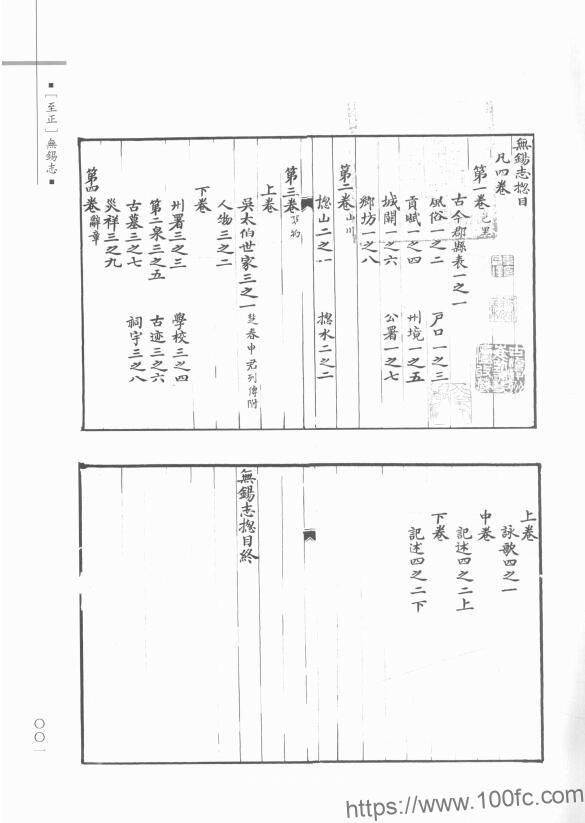 [至正]無錫志
無錫志揔目
凡四卷
第一卷 邑里
古今郡縣表一之一
風俗一之二 戶口一之三
貢賦一之四 州境一之五
城關一之六 公署一之七
鄉坊一之八
第二卷 山川
揔山二之一 揔水二之二
第三卷 事物
上卷
吳太伯世家三之一 楚春申君列傳附
人物三之二
下卷
州署三之三 學校三之四
第二泉三之五 古迹三之六
古墓三之七 祠宇三之八
災祥三之九
第四卷 辭章
上卷
詠歌四之一
中卷
記述四之二上
下卷
記述四之二下
無錫志揔目終
〇〇一
https://www.100fc.com